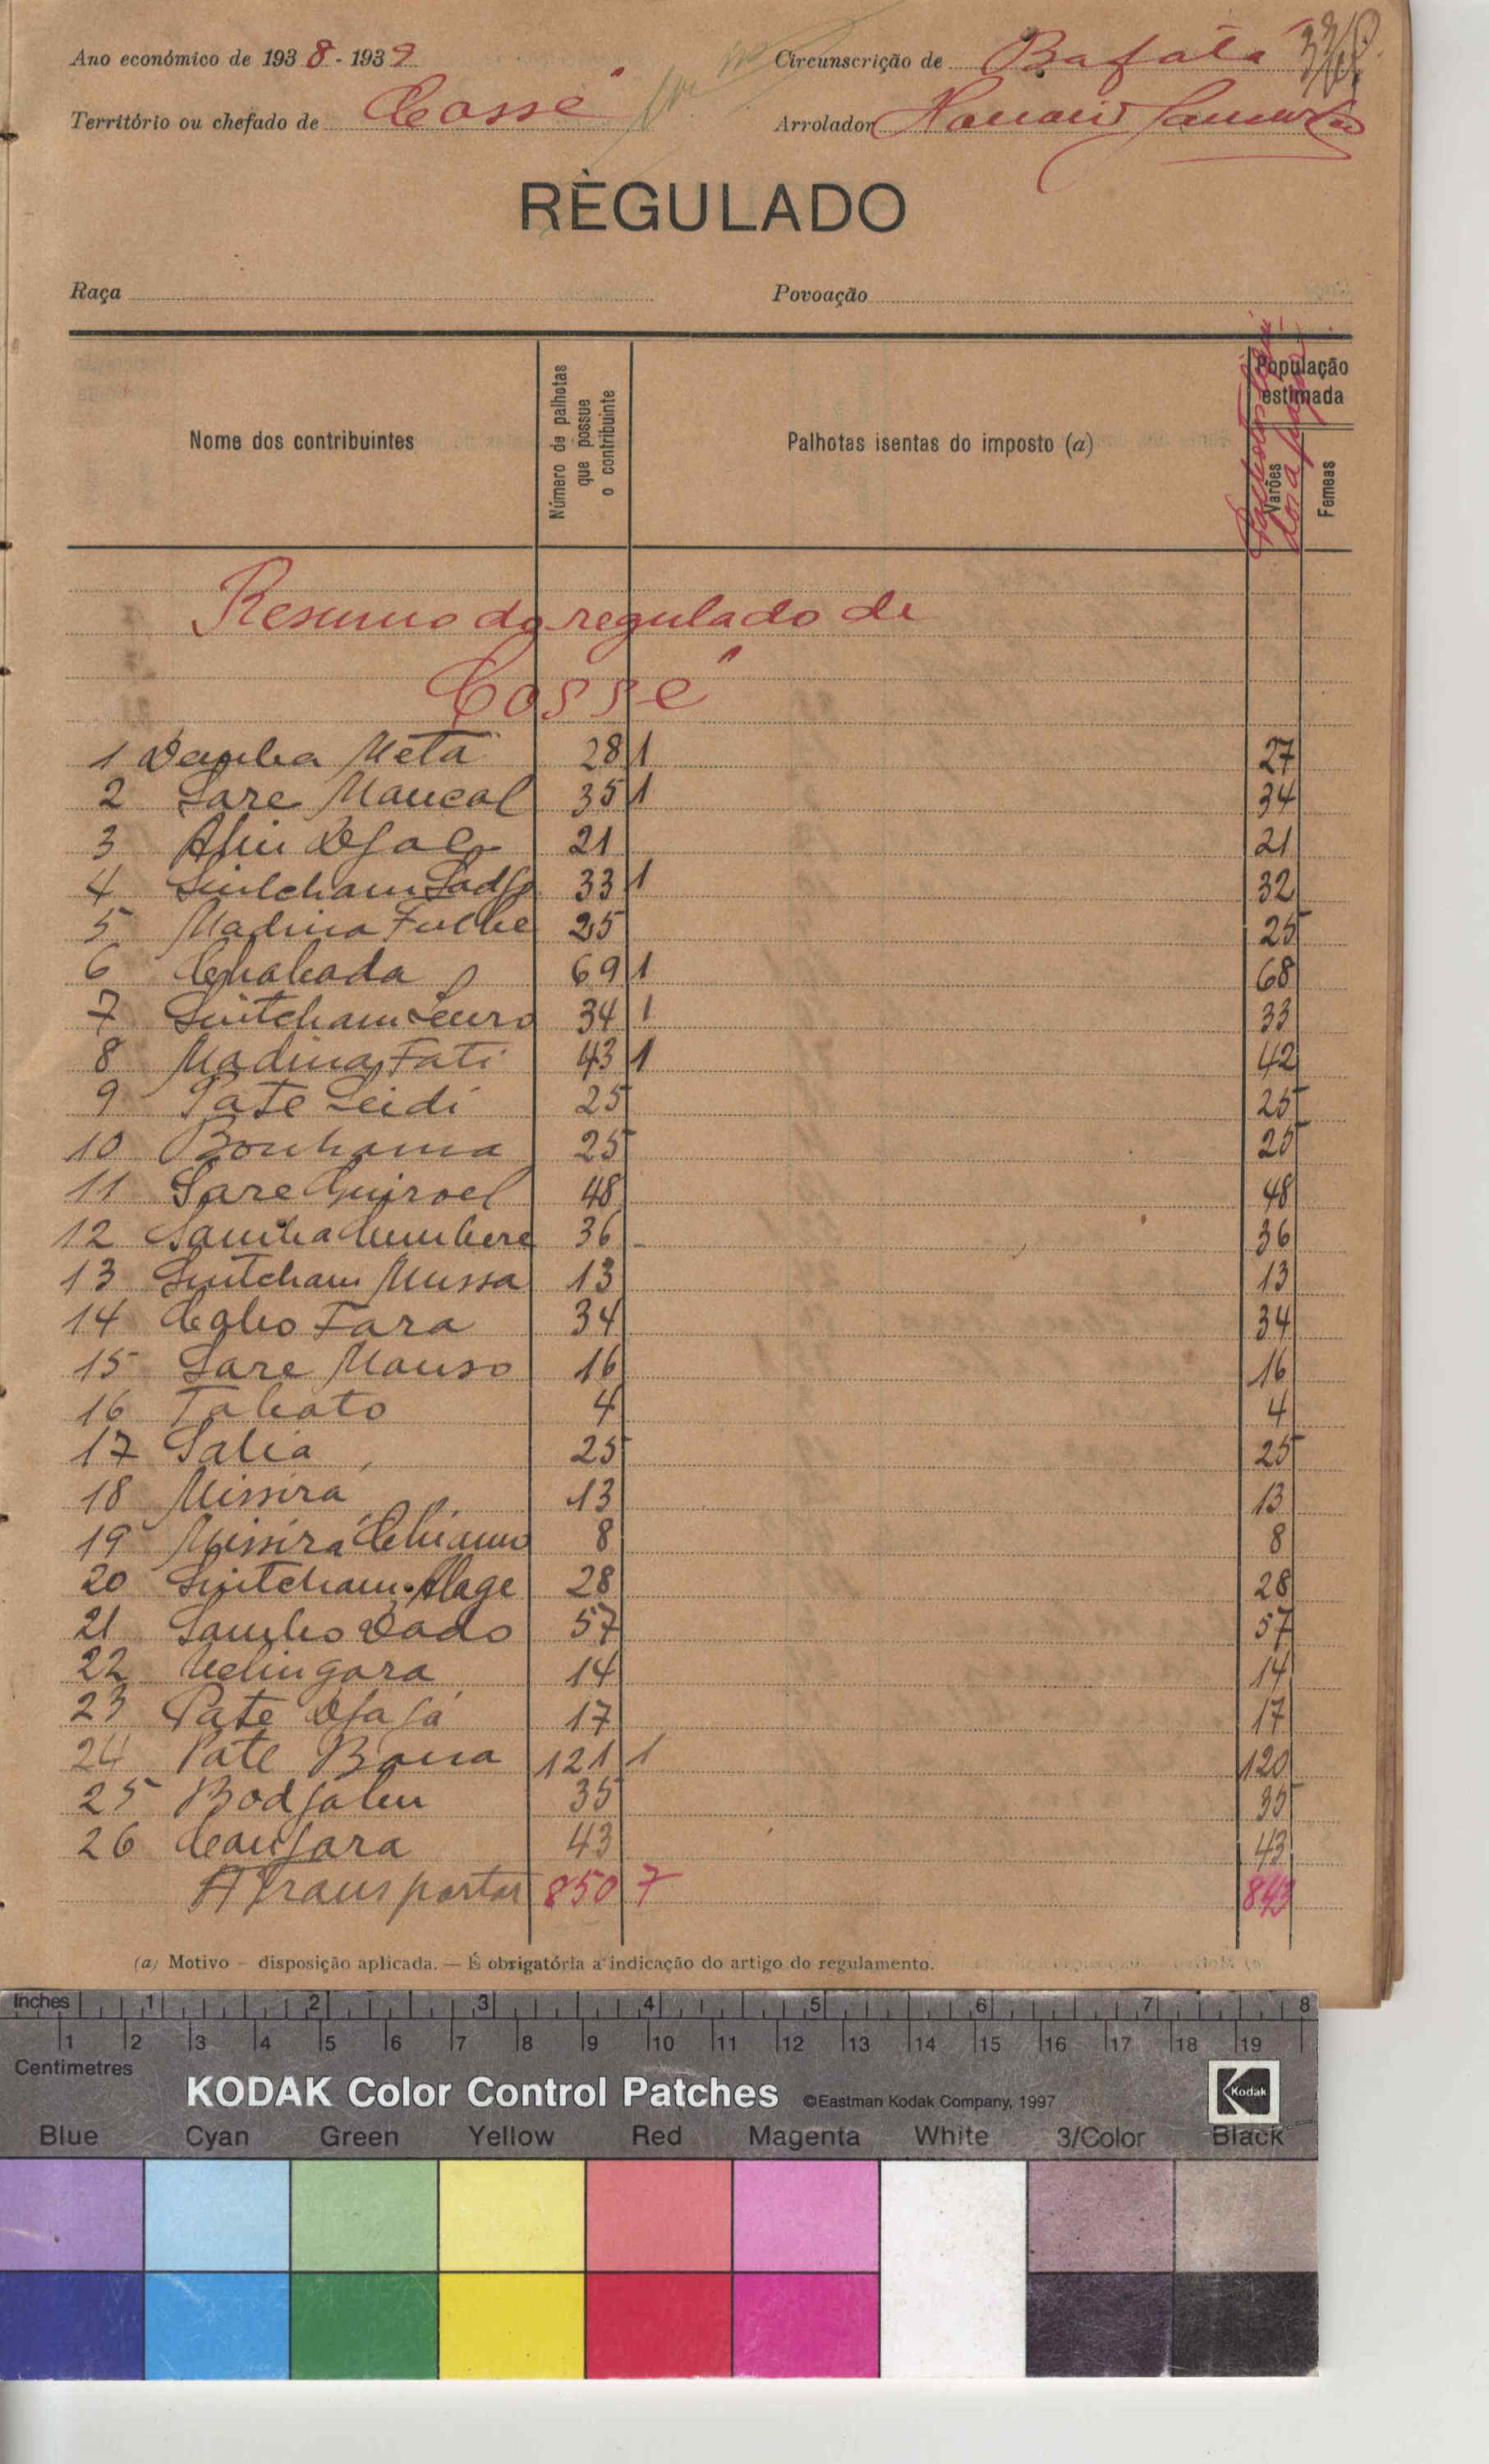 Ano económico de 1938-1939 Circunscrição de Bafatá
Território ou chefado de Cossé Arrolador
RÈGULADO
Raça Povoação
Nome dos contribuintes Número de palhotas que possue o contribuinte Palhotas isentas do imposto (a) População estimada Varões Femeas
Resumo do regulado de
Cossé
1 Demba Meta 28 1 27
2 Sare Maucal 35 1 34
3 21 21
4 Sintcham 33 1 32
5 Madina Fulbe 25 25
6 69 1 68
7 Sintcham 34 1 33
8 Madina Fati 43 1 42
9 Pate Leidi 25 25
10 25 25
11 Sare Guiroel 48 48
12 Samba Cumbere 36 36
13 Sintcham Mussa 13 13
14 Fara 34 34
15 Sare Manso 16 16
16 Tabato 4 4
17 Salia 25 25
18 Missira 13 13
19 Missirá 8 8
20 Sintcham Alage 28 28
21 Dado 57 57
22 Velingara 14 14
23 Pate Djajá 17 17
24 Pate 121 1 120
25 35 35
26 Canjara 43 43
A Transportar 850 7 843
(a) Motivo - disposição aplicada. — É obrigatória a indicação do artigo do regulamento.
Inches 1 2 3 4 5 6 7 8
1 2 3 4 5 6 7 8 9 10 11 12 13 14 15 16 17 18 19
Centimetres
KODAK Color Control Patches ©Eastman Kodak Company, 1997 Kodak
Blue Cyan Green Yellow Red Magenta White 3/Color Black